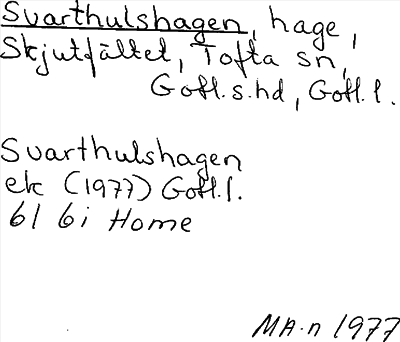 Svarthulshagen, hage,
Skjutfältet, Tofta sn,
Gotl.s.hd, Gotl.l.
Svarthulshagen
ek (1977) Gotl.l.
6I 6i Home
MA.n 1977